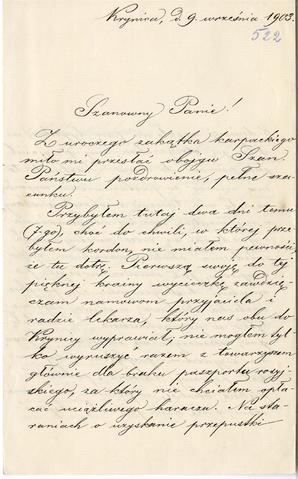 Krynica, d. 9. września 1903.
522
Szanowny Panie!
Z uroczego zakątka karpackiego
miło mi przesłać obojgu Szan.
Państwu pozdrowienie, pełne sza-
cunku.
Przybyłem tutaj dwa dni temu
(7go), choć do chwili, w której prze-
byłem kordon, nie miałem pewności,
że tu dotrę. Pierwszą swoją do tej
pięknej krainy wycieczkę zawdzię-
czam namowom przyjaciela i
radzie lekarza, który nas obu do
Krynicy wyprawiał; nie mogłem tyl-
ko wyruszyć razem z towarzyszem
głównie dla braku paszportu rosyj-
skiego, za który nie chciałem opła-
cać uciążliwego haraczu. Na sta-
raniach o uzyskanie przepustki